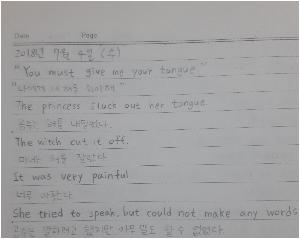 Date Page
2018년 7월 4일 (수)
"You must give me your tongue."
"나에게 네 혀를 줘야해"
The princess stuck out her tongue.
공주는 혀를 내밀었다.
The witch cut it off.
마녀는 혀를 잘랐다.
It was very painful
너무 아팠다.
She tried to speak, but could not make any words
공주는 말하려고 했지만 아무 말도 할 수 없었다.